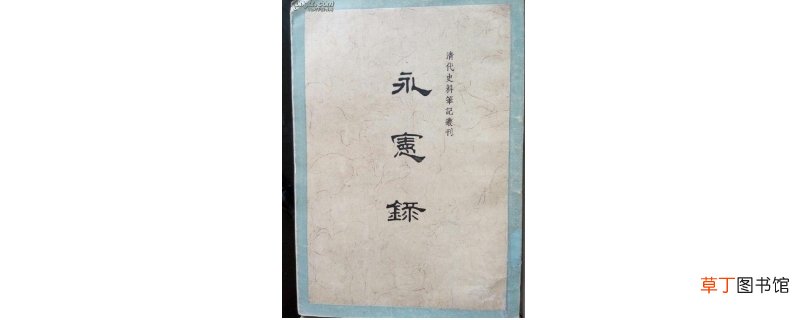 清代史料筆記叢刊
永憲錄
草丁图书馆